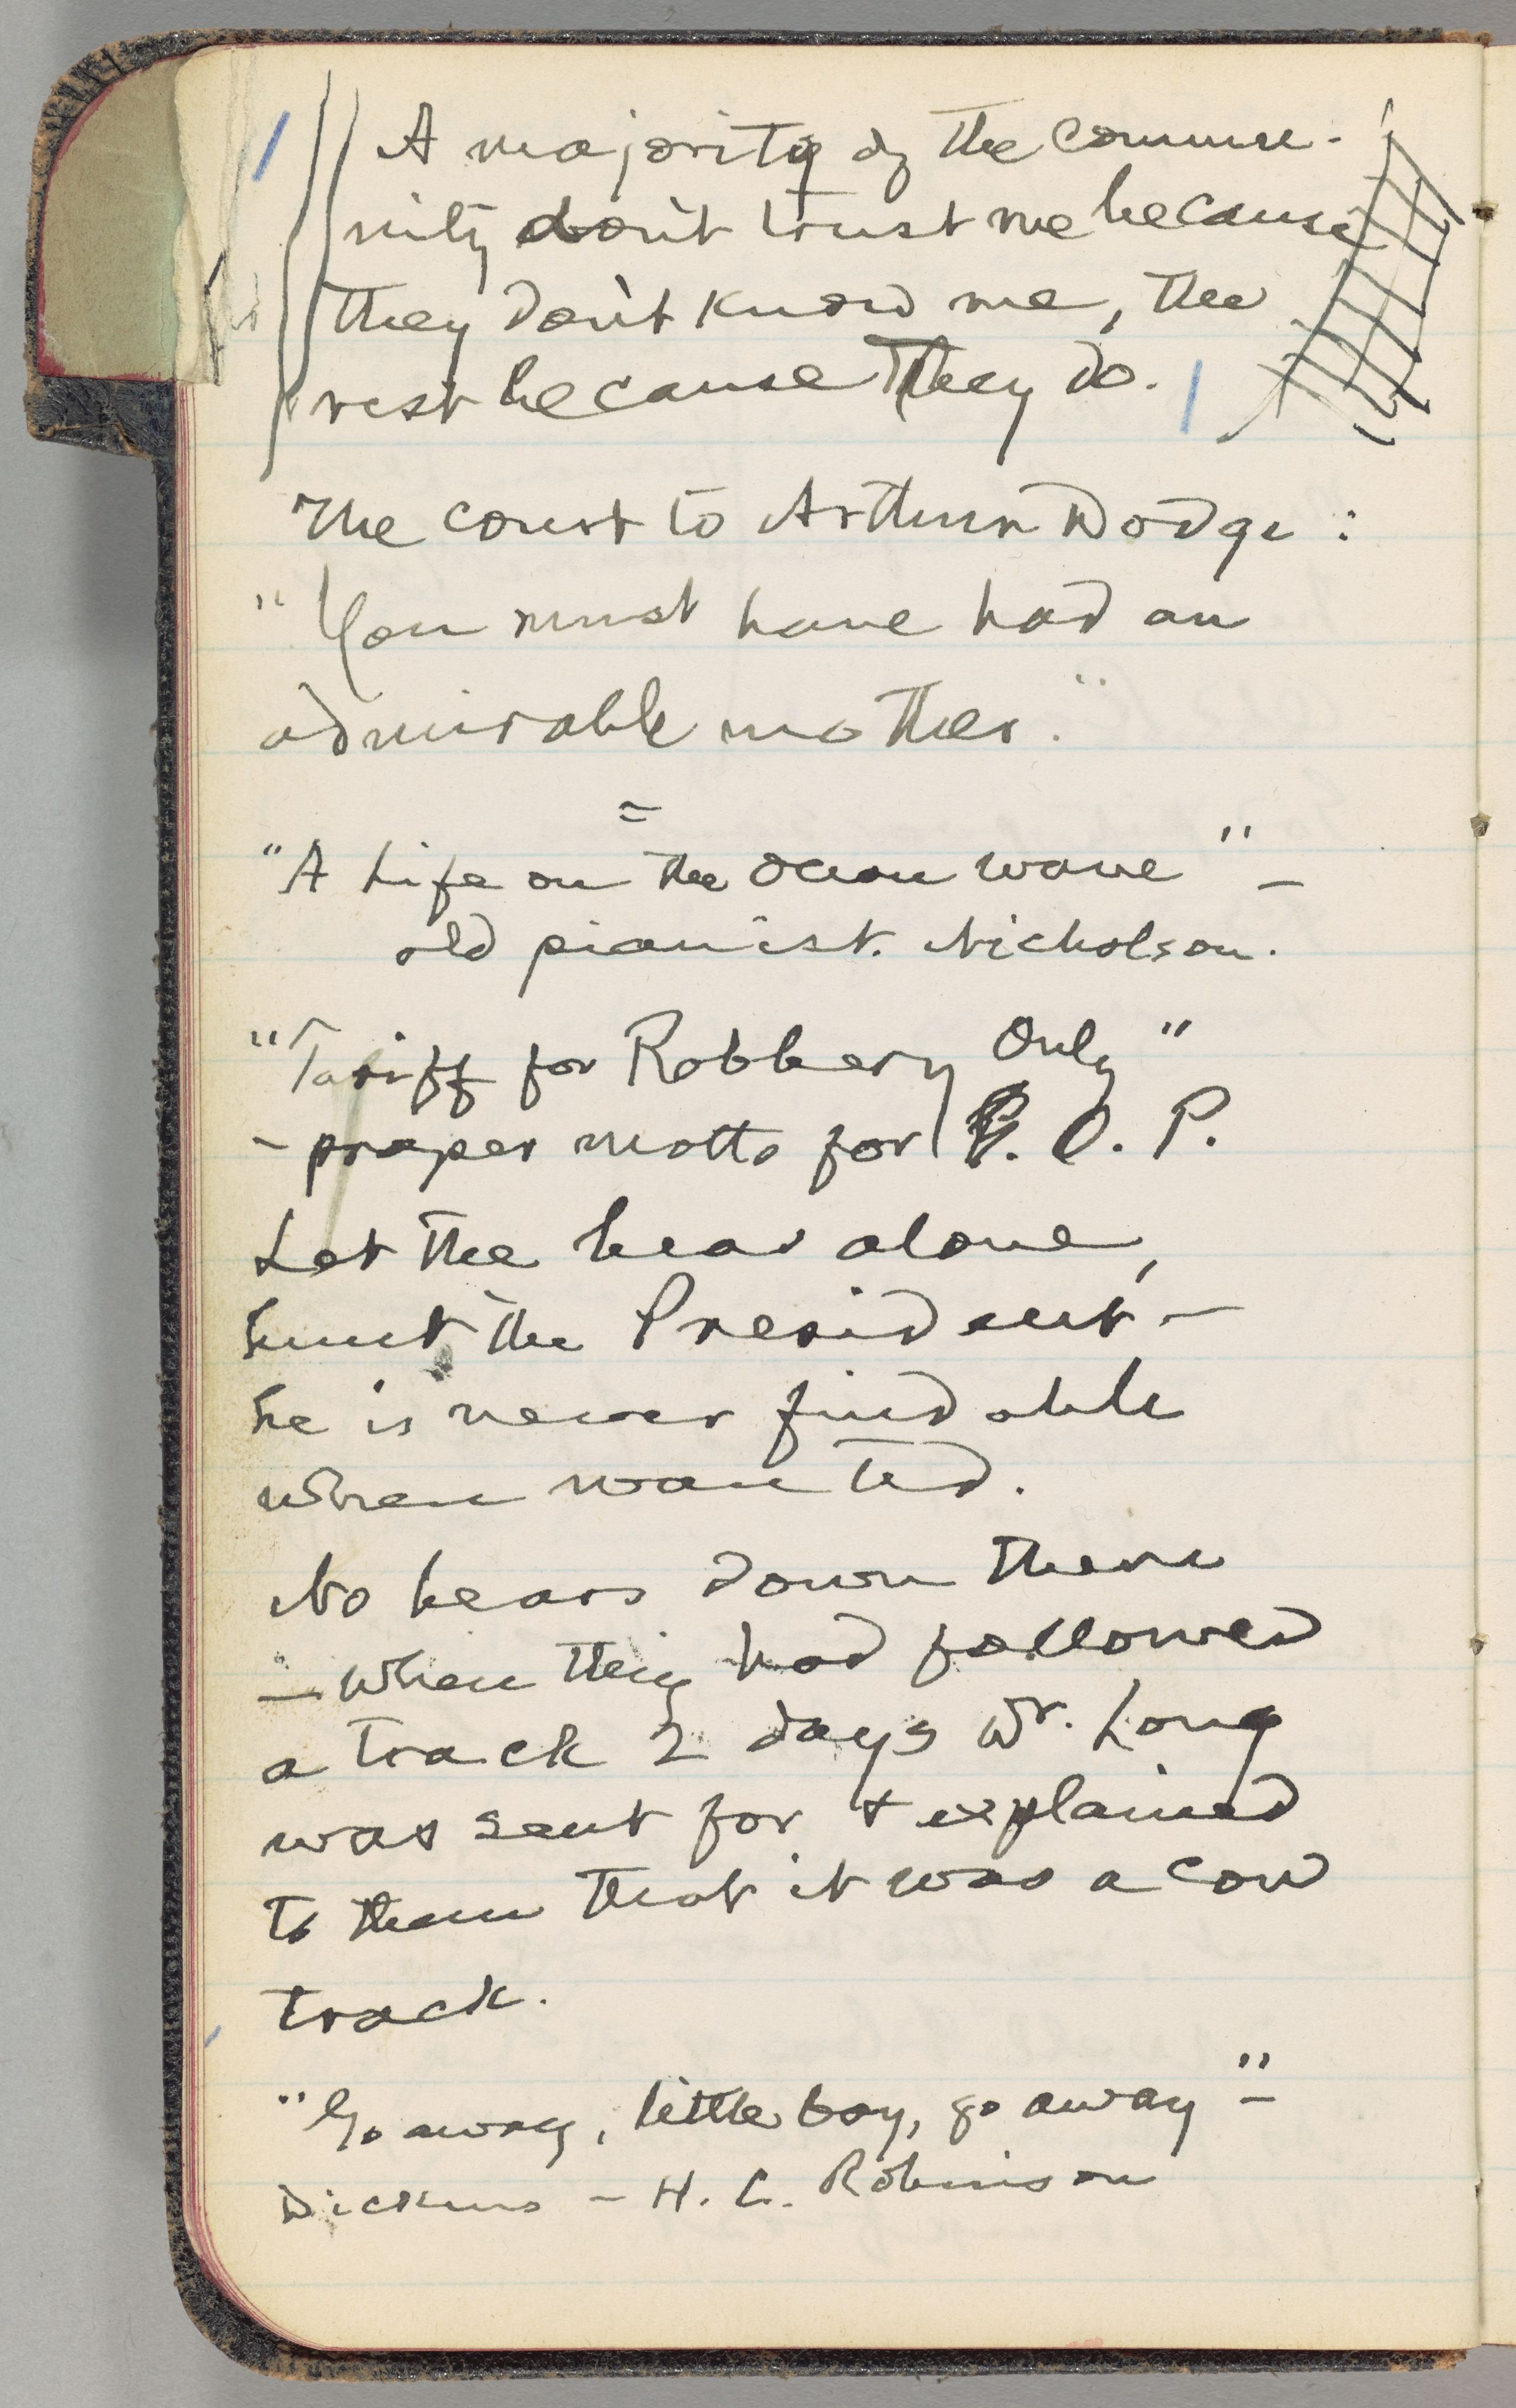 A majority of the commu-
nity don't trust me because
they don't know me, the
rest because they do.
The court to Arthur Dodge :
"You must have had an
admirable mother."
=
"A Life on the Ocean wave" —
old pianist. Nicholson.
"Tariff for Robbery Only"
– proper motto for G. O. P.
Let the bear alone,
hunt the President –
he is never findable
when wanted.
No bears down there
— when they had followed
a track 2 days Dr. Long
was sent for & explained
to them that it was a cow
track.
"Go away, little boy, go away" –
Dickens – H. C. Robinson